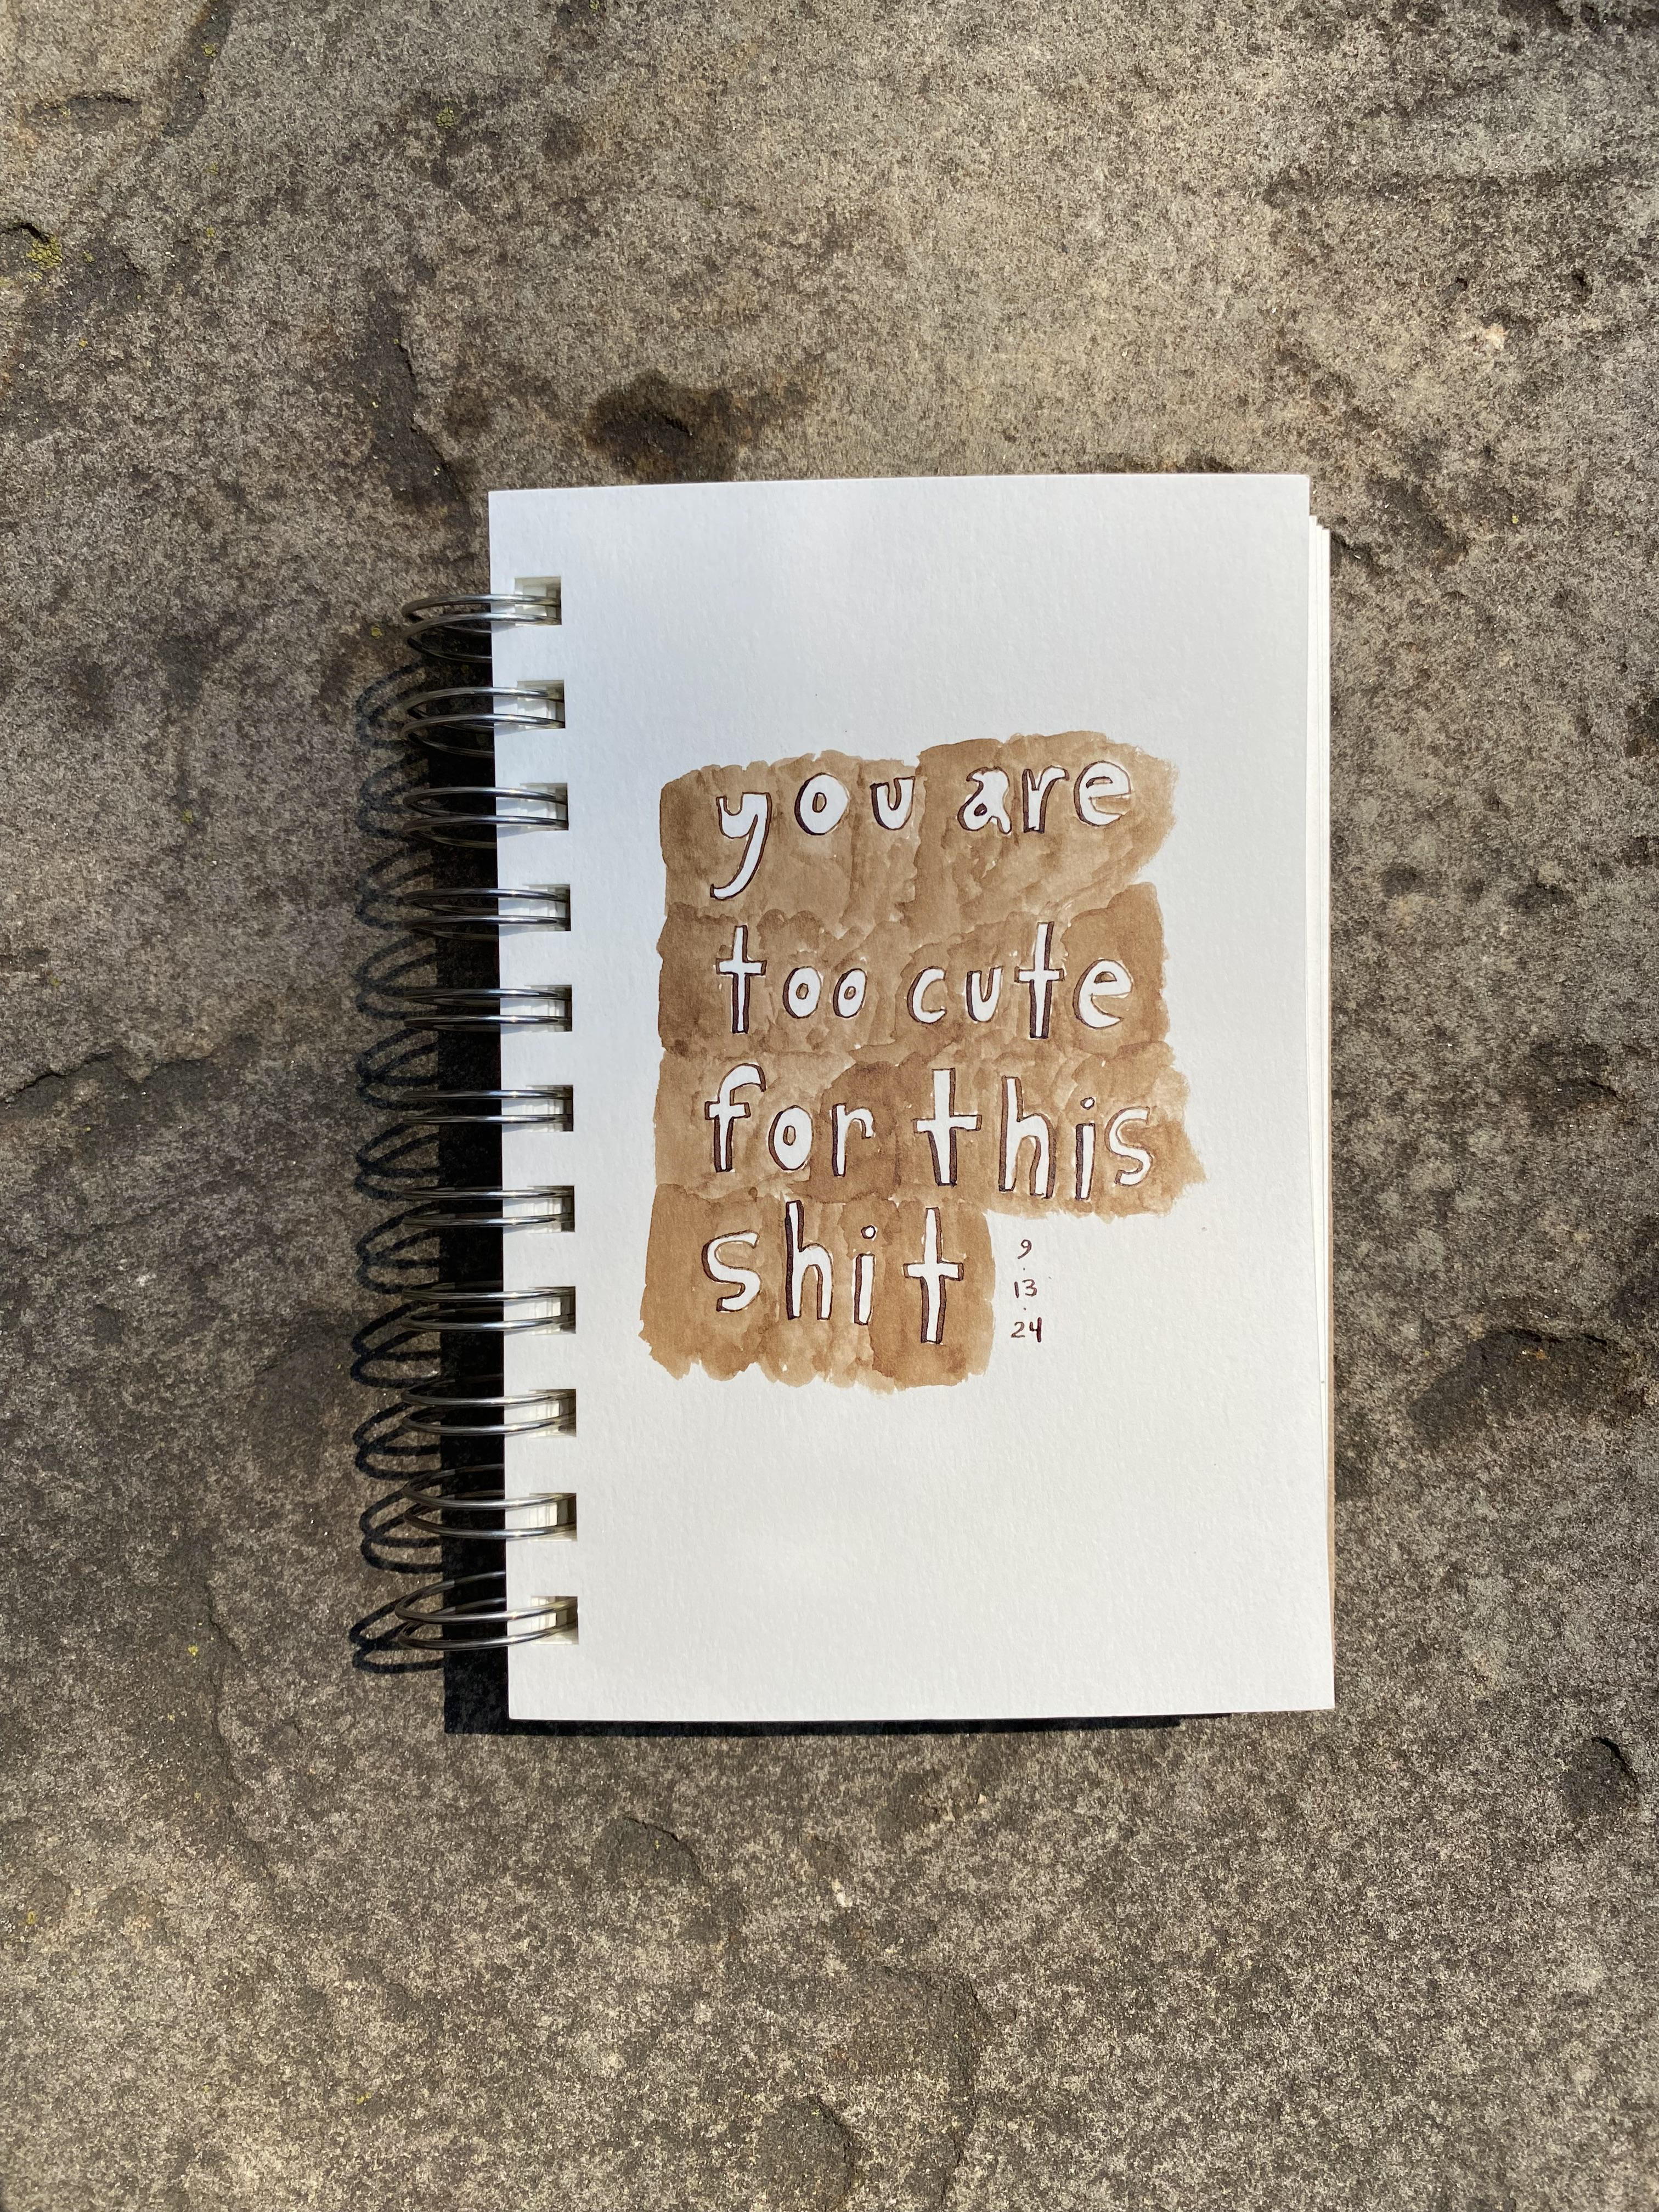 you are
too cute
for this
shit
9
.
13
.
24